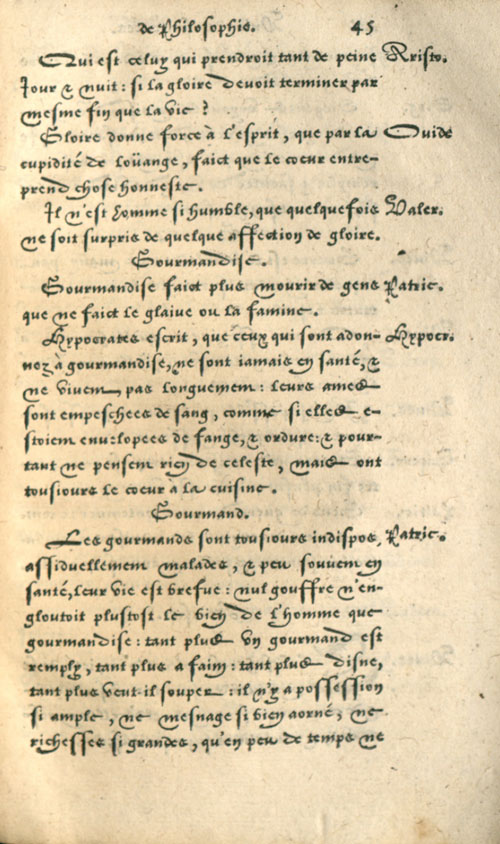 de Philosophie. 45
Qui est celuy qui prendroit tant de peine Aristo.
Jour & nuit : si la gloire devoit terminer par
mesme fin que la vie ?
Gloire donne force à l'esprit, que par la Ouide
cupidité de loüange, faict que le coeur entre-
prend chose honneste.
Il n'est homme si humble, que quelquefois Valer.
ne soit surpris de quelque affection de gloire.
Gourmandise.
Gourmandise faict plus mourir de gens Patric.
que ne faict le glaive ou la famine.
Hypocrates escrit, que ceux qui sont adon- Hypocr.
nez à gourmandise, ne sont iamais en santé, &
ne vivent pas longuement : leurs ames
sont empeschees de sang, comme si elles e-
stoient envelopees de fange, & ordure : & pour-
tant ne pensent rien de celeste, mais ont
tousiours le coeur a la cuisine.
Gourmand.
Les gourmands sont tousiours indispos, Patric.
assiduellement malades, & peu souvent en
santé, leur vie est brefue : nul gouffre n'en-
gloutoit plustost le bien de l'homme que
gourmandise : tant plus un gourmand est
remply, tant plus a faim : tant plus disne,
tant plus veut il souper : il n'y a possession
si ample, ne mesnage si bien aorné, ne
richesses si grandes, qu'en peu de temps ne